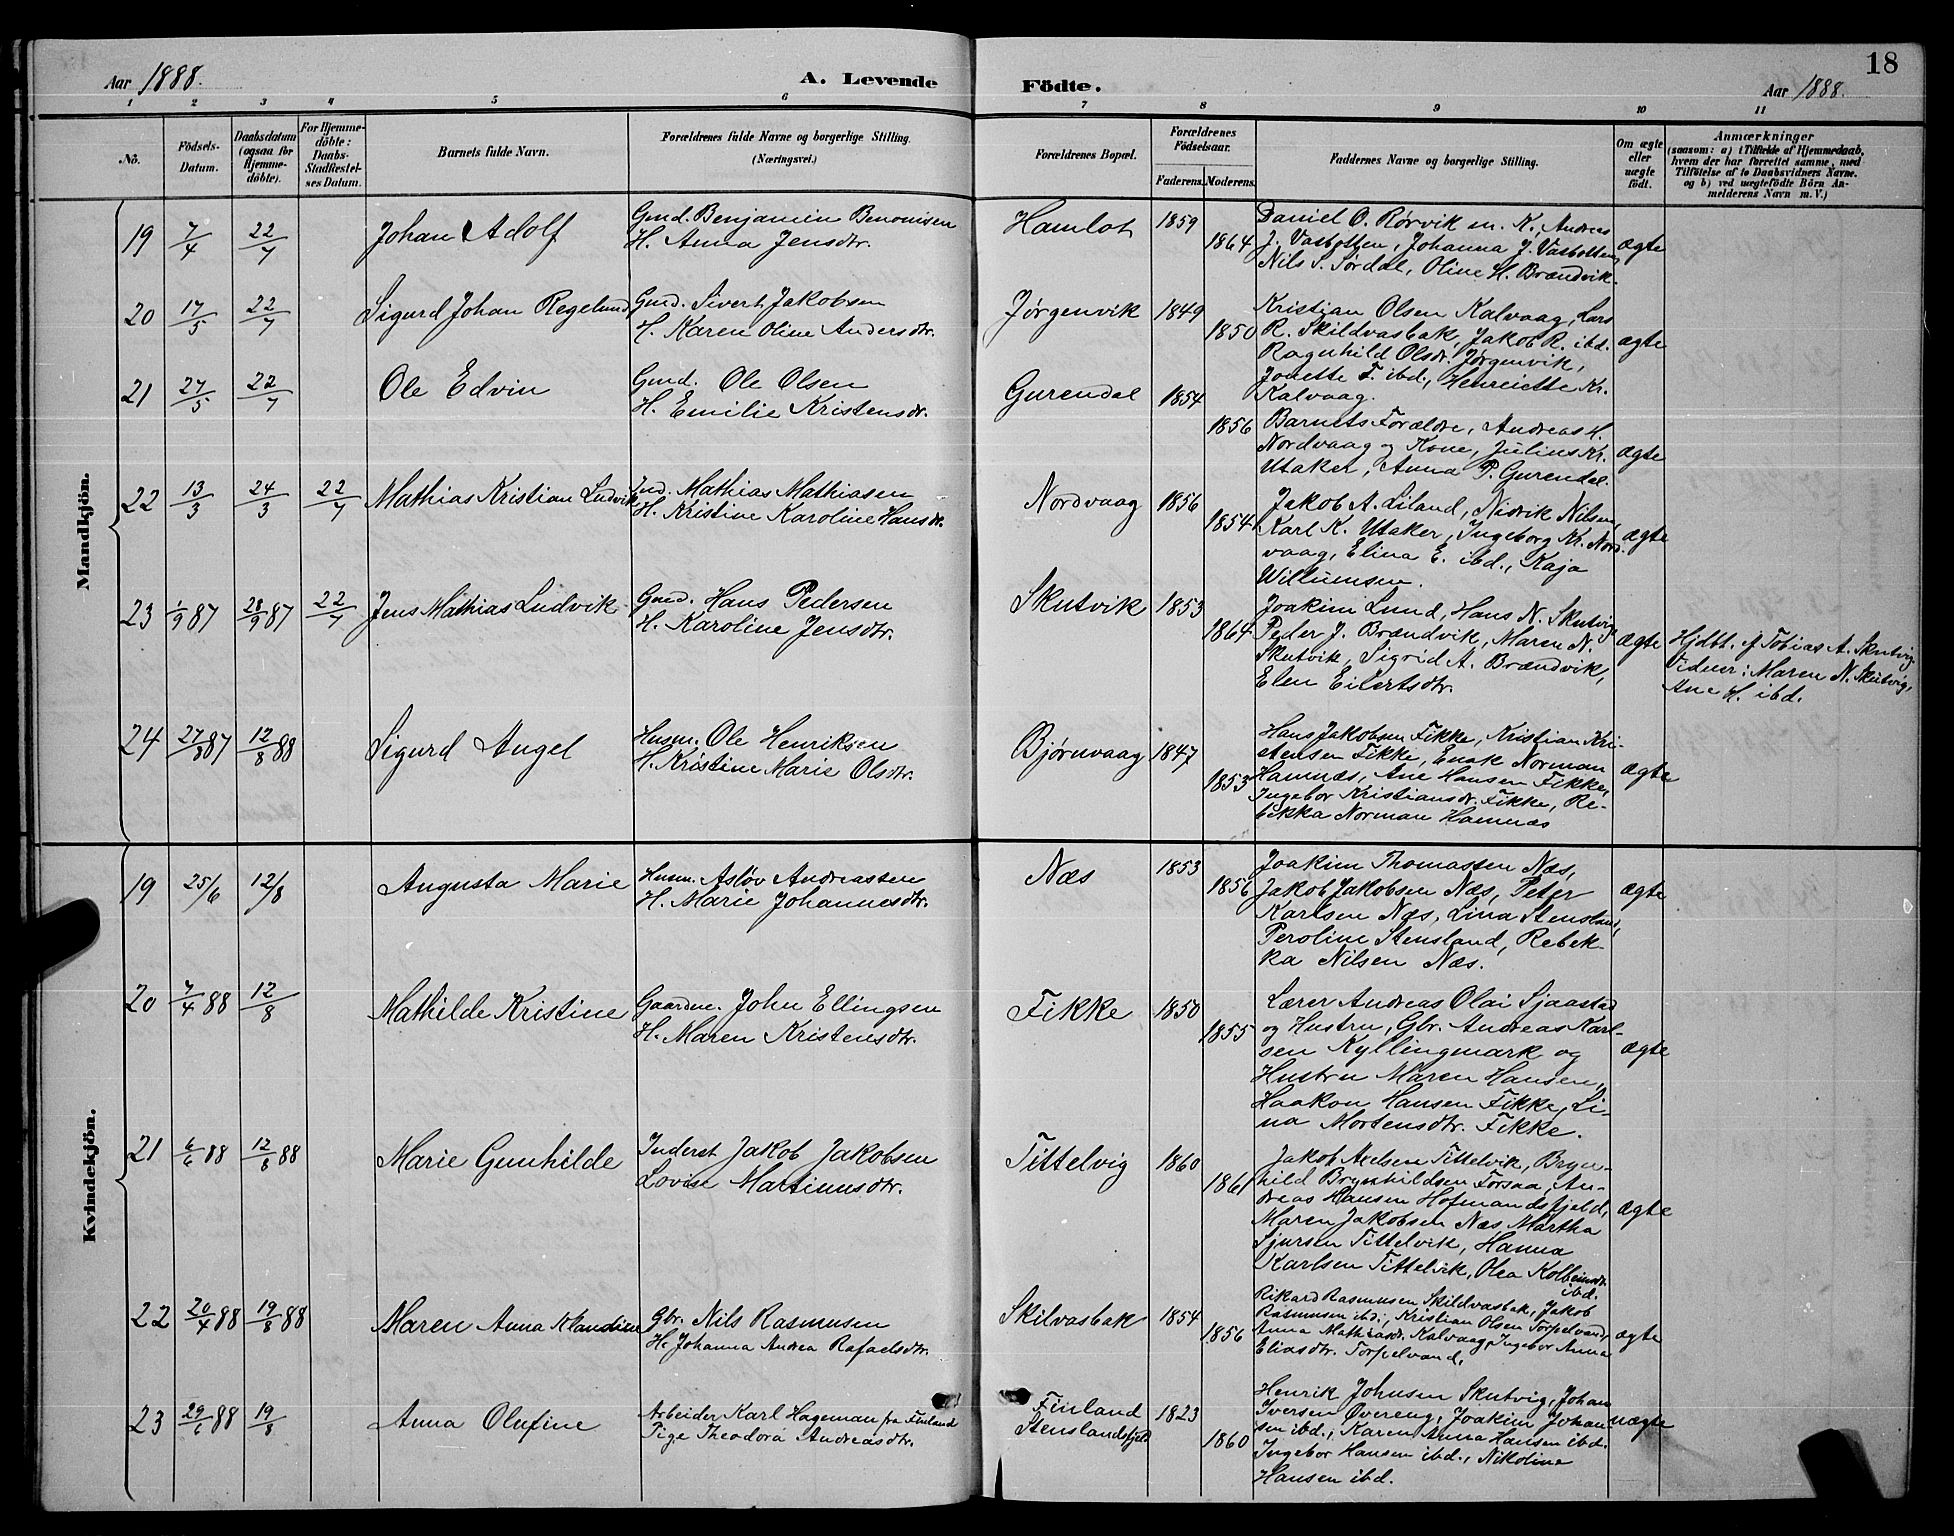 Aar 1888.
A. Levende
Födte.
Aar 1888.
18
1 2 3 4 5 6 7 8 9 10 11
No.
Födsels-
Datum.
Daabsdatum
(ogsaa for
Hjemme-
döbte).
For Hjemme-
döbte:
Daabs-
Stadfæstel-
ses Datum.
Barnets fulde Navn.
Forældrenes fulde Navne og borgerlige Stilling.
(Næringsvei.)
Forældrenes Bopæl.
Forældrenes
Födselsaar.
Faderens. Moderens.
Faddernes Navne og borgerlige Stilling.
Om ægte
eller
uægte
födt.
Anmærkninger
(saasom: a) i Tilfælde af Hjemmedaab,
hvem der har forrettet samme, med
Tilföielse af to Daabsvidners Navne.
og b) ved uægtefödte Börn An-
melderens Navn m. V.)
Mandkjön.
19 7/4 22/7 Johan Adolf
Gmd. Benjamin Benonisen
H. Anna Jensdtr.
Hamlot 1859 1864
Daniel O. Rørvik m. K. Andreas
J. Vasbotten, Johanna J. Vasbotten,
Nils S. Sørdal, Oline H. Brændvik.
ægte
20 17/5 22/7 Sigurd Johan Regelund
Gmd. Sivert Jakobsen
H. Karen Oline Andersdtr.
Jørgenvik 1849 1850
Kristian Olsen Kalvaag, Lars
R. Skildvasbak, Jakob R. ibd.
Ragnhild Olsdr. Jørgenvik,
Jonette F. ibd., Henriette Kr.
Kalvaag.
ægte
21 27/5 22/7 Ole Edvin
Gmd. Ole Olsen
H. Emilie Kristensdr.
Gurendal 1854 1856
Barnets Forældre, Andreas H.
Nordvaag og Kone, Julius Kr.
Utaker, Anna P. Gurendal.
ægte
22 13/3 24/3 22/7 Mathias Kristian Ludvik
Ind. Mathias Mathiasen
H. Kristine Karoline Hansdr.
Nordvaag 1856 1854
Jakob A. Liland, Nidrik Nilsen,
Karl K. Utaker, Ingeborg Kr. Nord-
vaag, Elina E. ibd., Kaja
Willumsen.
ægte
23 1/9 87 28/9 87 22/7 Jens Mathias Ludvik
Gmd. Hans Pedersen
H. Karoline Jensdtr.
Skutvik 1853 1864
Joakim Lund, Hans N. Skutvig
Peder J. Brændvik, Maren N.
Skutvik, Sigrid A. Brændvik,
Elen Eilertsdtr.
ægte
Hjdbt. af Tobias A. Skutvig
Vidner: Maren N. Skutvig,
Ane H. ibd.
24 27/8 87 12/8 88 Sigurd Angel
Husm. Ole Henriksen
H. Kristine Marie Olsdtr.
Bjørnvaag 1847 1853
Hans Jakobsen Fikke, Kristian Kri-
stensen Fikke, Enok Norman
Hamnæs, Ane Hansen Fikke,
Ingebor Kristiansdr. Fikke, Re-
bekka Norman Hamnæs
ægte
Kvindekjön.
19 25/6 12/8 Augusta Marie
Husm. Asløv Andreassen
H. Marie Johannesdtr.
Næs 1853 1856
Joakim Thomassen Næs,
Jakob Jakobsen Næs, Peter
Karlsen Næs, Lina Stensland,
Peroline Stensland, Rebek-
ka Nilsen Næs.
ægte
20 7/4 88 12/8 Mathilde Kristine
Gaardm. John Ellingsen
H. Maren Kristensdtr.
Fikke 1850 1855
Lærer Andreas Olai Sjaastad
og Hustru, Gbr. Andreas Karl-
sen Kyllingmark og
Hustru Maren Hansen,
Haakon Hansen Fikke, Li-
na Mortensdtr. Fikke.
ægte
21 6/6 88 12/8 88 Marie Gunhilde
Inderst Jakob Jakobsen
Lovise Martinusdtr.
Tittelvig 1860 1861
Jakob Axelsen Tittelvik, Bryn-
hild Brynhildsen Forsaa, An-
dreas Hansen Hofmandsfjeld,
Maren Jakobsen Næs Martha
Sjursen Tittelvik, Hanna
Karlsen Tittelvik, Olea Kolbeinsdtr.
ibd.
ægte
22 20/4 88 19/8 88 Maren Anna Klaudine
Gbr. Nils Rasmusen
H. Johanna Andrea Rafaelsdtr.
Skilvasbak 1854 1856
Rikard Rasmusen Skildvasbak, Jakob
Rasmusen ibd., Kristian Olsen Torpelvand,
Anna Mathiasdr. Kalvaag, Ingebor Anna
Eliasdtr. Torpelvand.
ægte
23 29/6 88 19/8 Anna Olufine
Arbeider Karl Hageman fra Finland
Pige Theodora Andreasdtr.
Finland
Stenslandsfjeld
1823 1860
Henrik Johnsen Skutvig, Johan
Iversen Øvereng, Joakim Johan-
sen ibd., Karen Anna Hansen ibd.
Ingebor Hansen ibd., Nikoline
Hansen ibd.
uægte